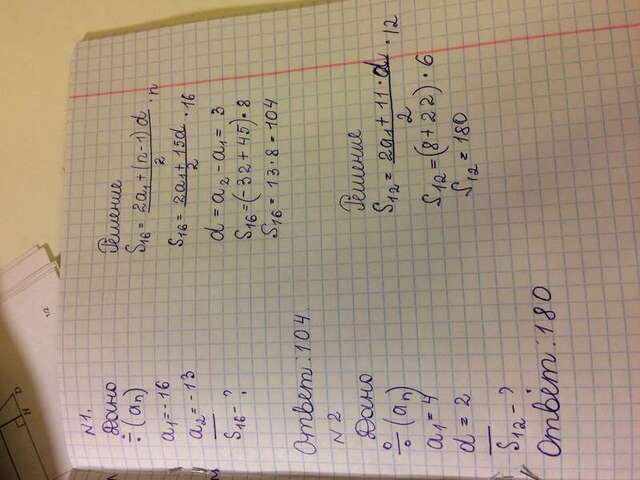 N D
1/2
N1.
Дано
÷ (aₙ)
a₁=-16
a₂=-13
S₁₆-?
Решение
S₁₆= (2a₁+(n-1)d)/2 · n
S₁₆= (2a₁+15d)/2 · 16
d=a₂-a₁= 3
S₁₆=(-32+45)·8
S₁₆= 13·8=104
Ответ:104.
N2
Дано
÷ (aₙ)
a₁=4
d=2
S₁₂-?
Решение
S₁₂= (2a₁+11·d)/2 · 12
S₁₂=(8+22)·6
S₁₂=180
Ответ:180